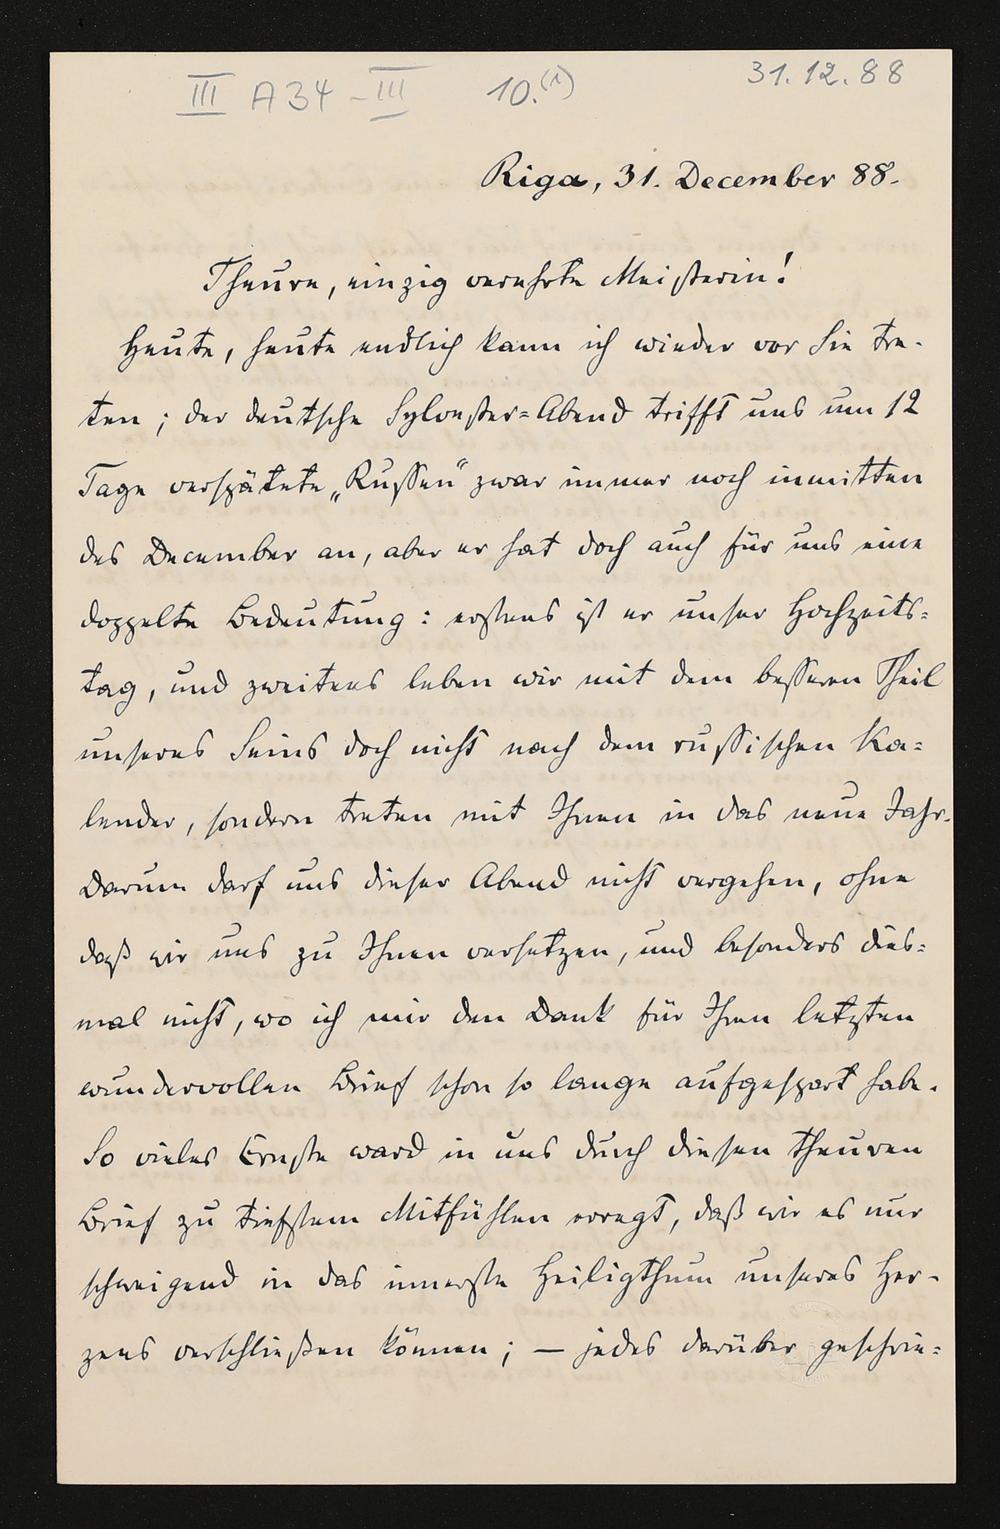 III A 34 - III 10.(1) 31.12.88
Riga, 31. December 88.
Theure, einzig verehrte Meisterin!
Heute, heute endlich kann ich wieder vor Sie tre-
ten; der deutsche Sylvester=Abend trifft uns um 12
Tage verspätete „Russen“ zwar immer noch inmitten
des December an, aber er hat doch auch für uns eine
doppelte Bedeutung: erstens ist er unser Hochzeits=
tag, und zweitens leben wir mit dem besseren Theil
unseres Seins doch nicht nach dem russischen Ka=
lender, sondern treten mit Ihnen in das neue Jahr.
Darum darf uns dieser Abend nicht vergehen, ohne
daß wir uns zu Ihnen versetzen, und besonders dies=
mal nicht, wo ich mir den Dank für Ihren letzten
wundervollen Brief schon so lange aufgespart habe.
So vieles Ernste ward in uns durch diesen theuren
Brief zu tiefstem Mitfühlen erregt, daß wir es nur
schweigend in das innerste Heiligthum unseres Her-
zens verschließen können; — jedes darüber geschrie=